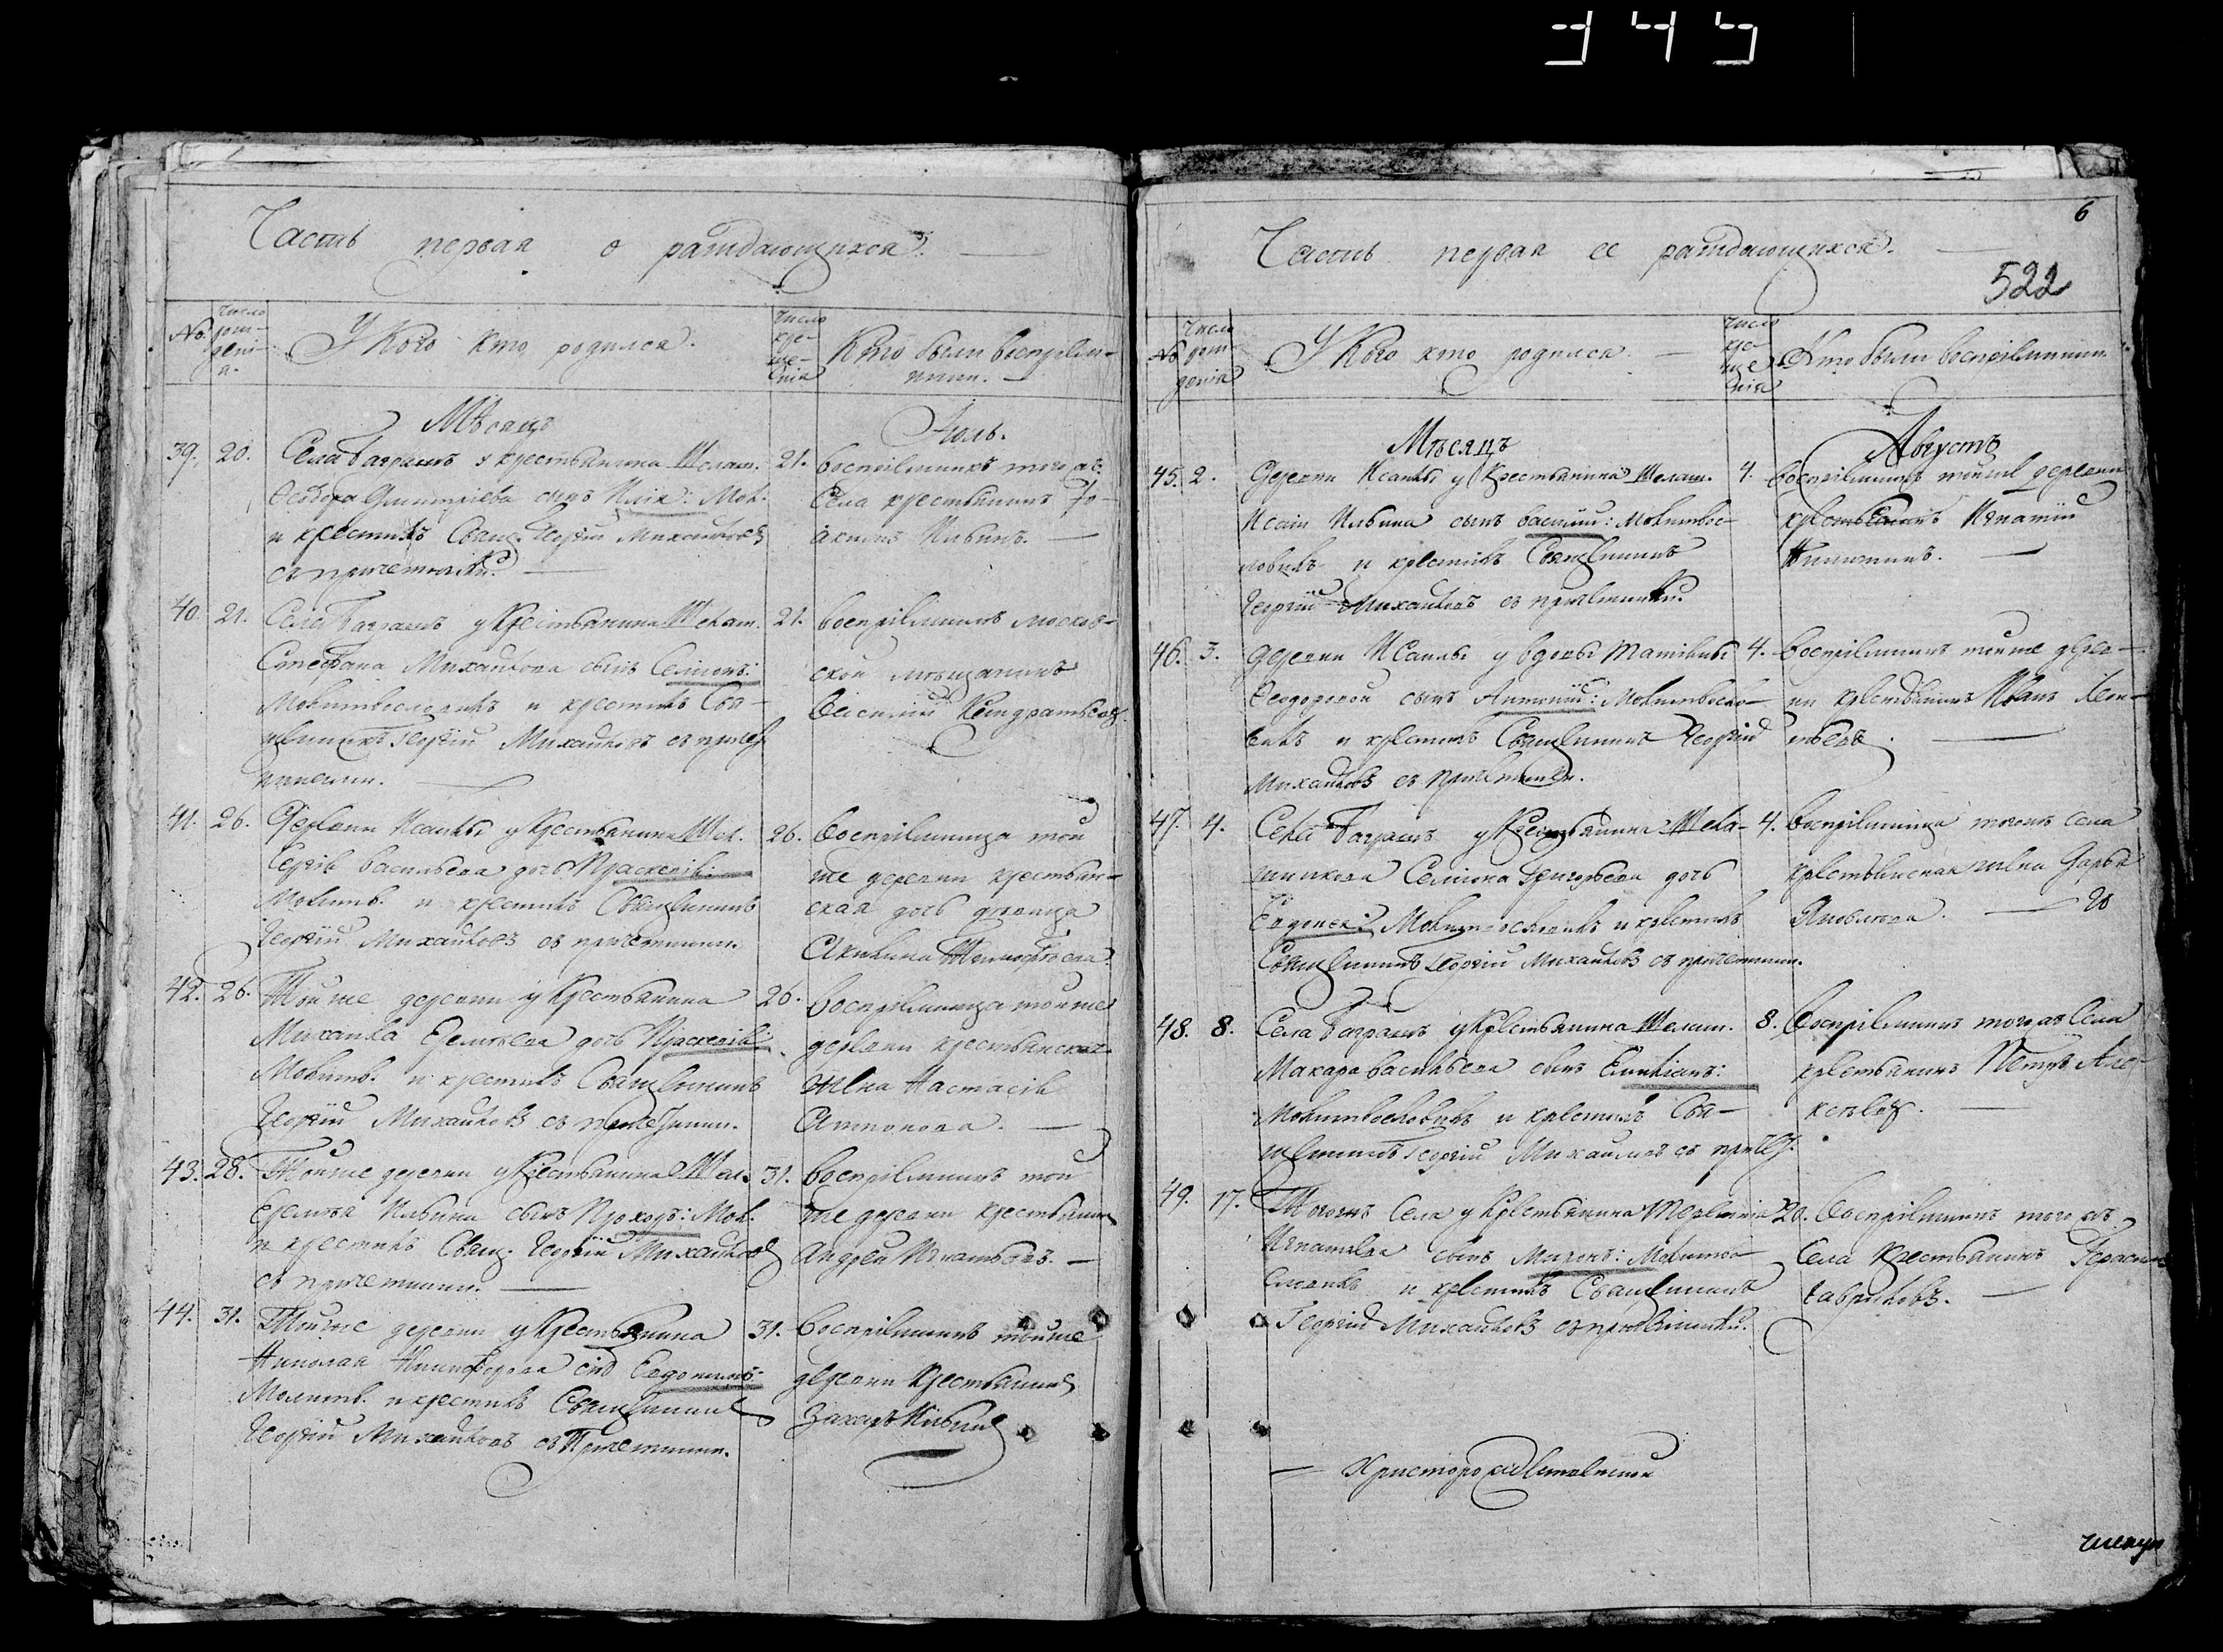 345
Часть первая о раждающихся.
No.
Число рождения.
У Кого кто родился.
Число крещения
Кто были воспріемники.
Мѣсяцъ
Іюль.
39. 20. Села у крестьянина
Ѳеодора Дмитріева сынъ Илія: Мол.
и крестилъ Свящ. Георгій Михайловъ
съ причетники.
21. воспріемникъ того жъ
Села крестьянинъ Іо-
акимъ Ильинъ.
40. 21. Села у Крестьянина
Стефана Михайлова сынъ Семіонъ:
Молитвословилъ и крестилъ Свя-
щенникъ Георгій Михайловъ съ приче
тники.
21. воспріемникъ москов-
ской мѣщанинъ
Василій Кондратьевъ.
41. 26. Деревни Исаклы у Крестьянина
Сергія Васильева дочь Праскевія:
Молитв. и крестилъ Священникъ
Георгій Михайловъ съ причетники.
26. Воспріемница той
же деревни крестьян-
ская дочь дѣвица
Акилина
42. 26. Той же деревни у Крестьянина
Михаила дочь Праскевія
Молитв. и крестилъ Священникъ
Георгій Михайловъ съ причетники.
26. воспріемница той же
деревни крестьянская
жена Настасія
43. 28. Той же деревни у Крестьянина
Ильина сынъ Прохоръ: Мол.
и крестилъ Свящ. Георгій Михайловъ
съ причетники.
31. воспріемникъ той
же деревни крестьянинъ
Андрей Игнатьевъ.
44. 31. Той же деревни у Крестьянина
Николая Никифорова снъ Евдокимъ:
Молитв. и крестилъ Священникъ
Георгій Михайловъ съ Причетники.
31. воспріемникъ той же
деревни Крестьянинъ
Захаръ Ильинъ
6
522
Часть первая о раждающихся.
No
Число рожденія
У Кого кто родился.
число крещенія
Кто были воспріемники.
Мѣсяцъ
Августъ
45. 2. Деревни Исаклы у Крестьянина
Исаіи Ильина сынъ Василій: Молитвос-
ловилъ и крестилъ Священникъ
Георгій Михайловъ съ причетники.
4. воспріемникъ той же деревни
крестьянинъ Игнатій
46. 3. Деревни Исаклы у вдовы Татіяны
Ѳеодоровой сынъ Антоній: Молитвосло-
вилъ и крестилъ Священникъ Георгій
Михайловъ съ причетники.
4. воспріемникъ той же дерев-
ни крестьянинъ Иванъ Леон-
тьевъ.
47. 4. Села у Крестьянина
Семіона Григорьева дочь
Евдокія: Молитвословилъ и крестилъ
Священникъ Георгій Михайловъ съ причетники.
4. воспріемница того жъ села
крестьянская жена Дарья
Яковлева.
48. 8. Села у Крестьянина
Макара Васильева сынъ Емиліанъ:
Молитвословилъ и крестилъ Свя-
щенникъ Георгій Михайловъ съ причет.
8. воспріемникъ того жъ Села
крестьянинъ Петръ Але-
ксѣевъ.
49. 17. Того жъ Села у Крестьянина Терентія
Игнатьева сынъ Миронъ: Молитво
словилъ и крестилъ Священникъ
Георгій Михайловъ съ причетники.
20. воспріемникъ того жъ
Села Крестьянинъ Герасимъ
Гавриловъ.